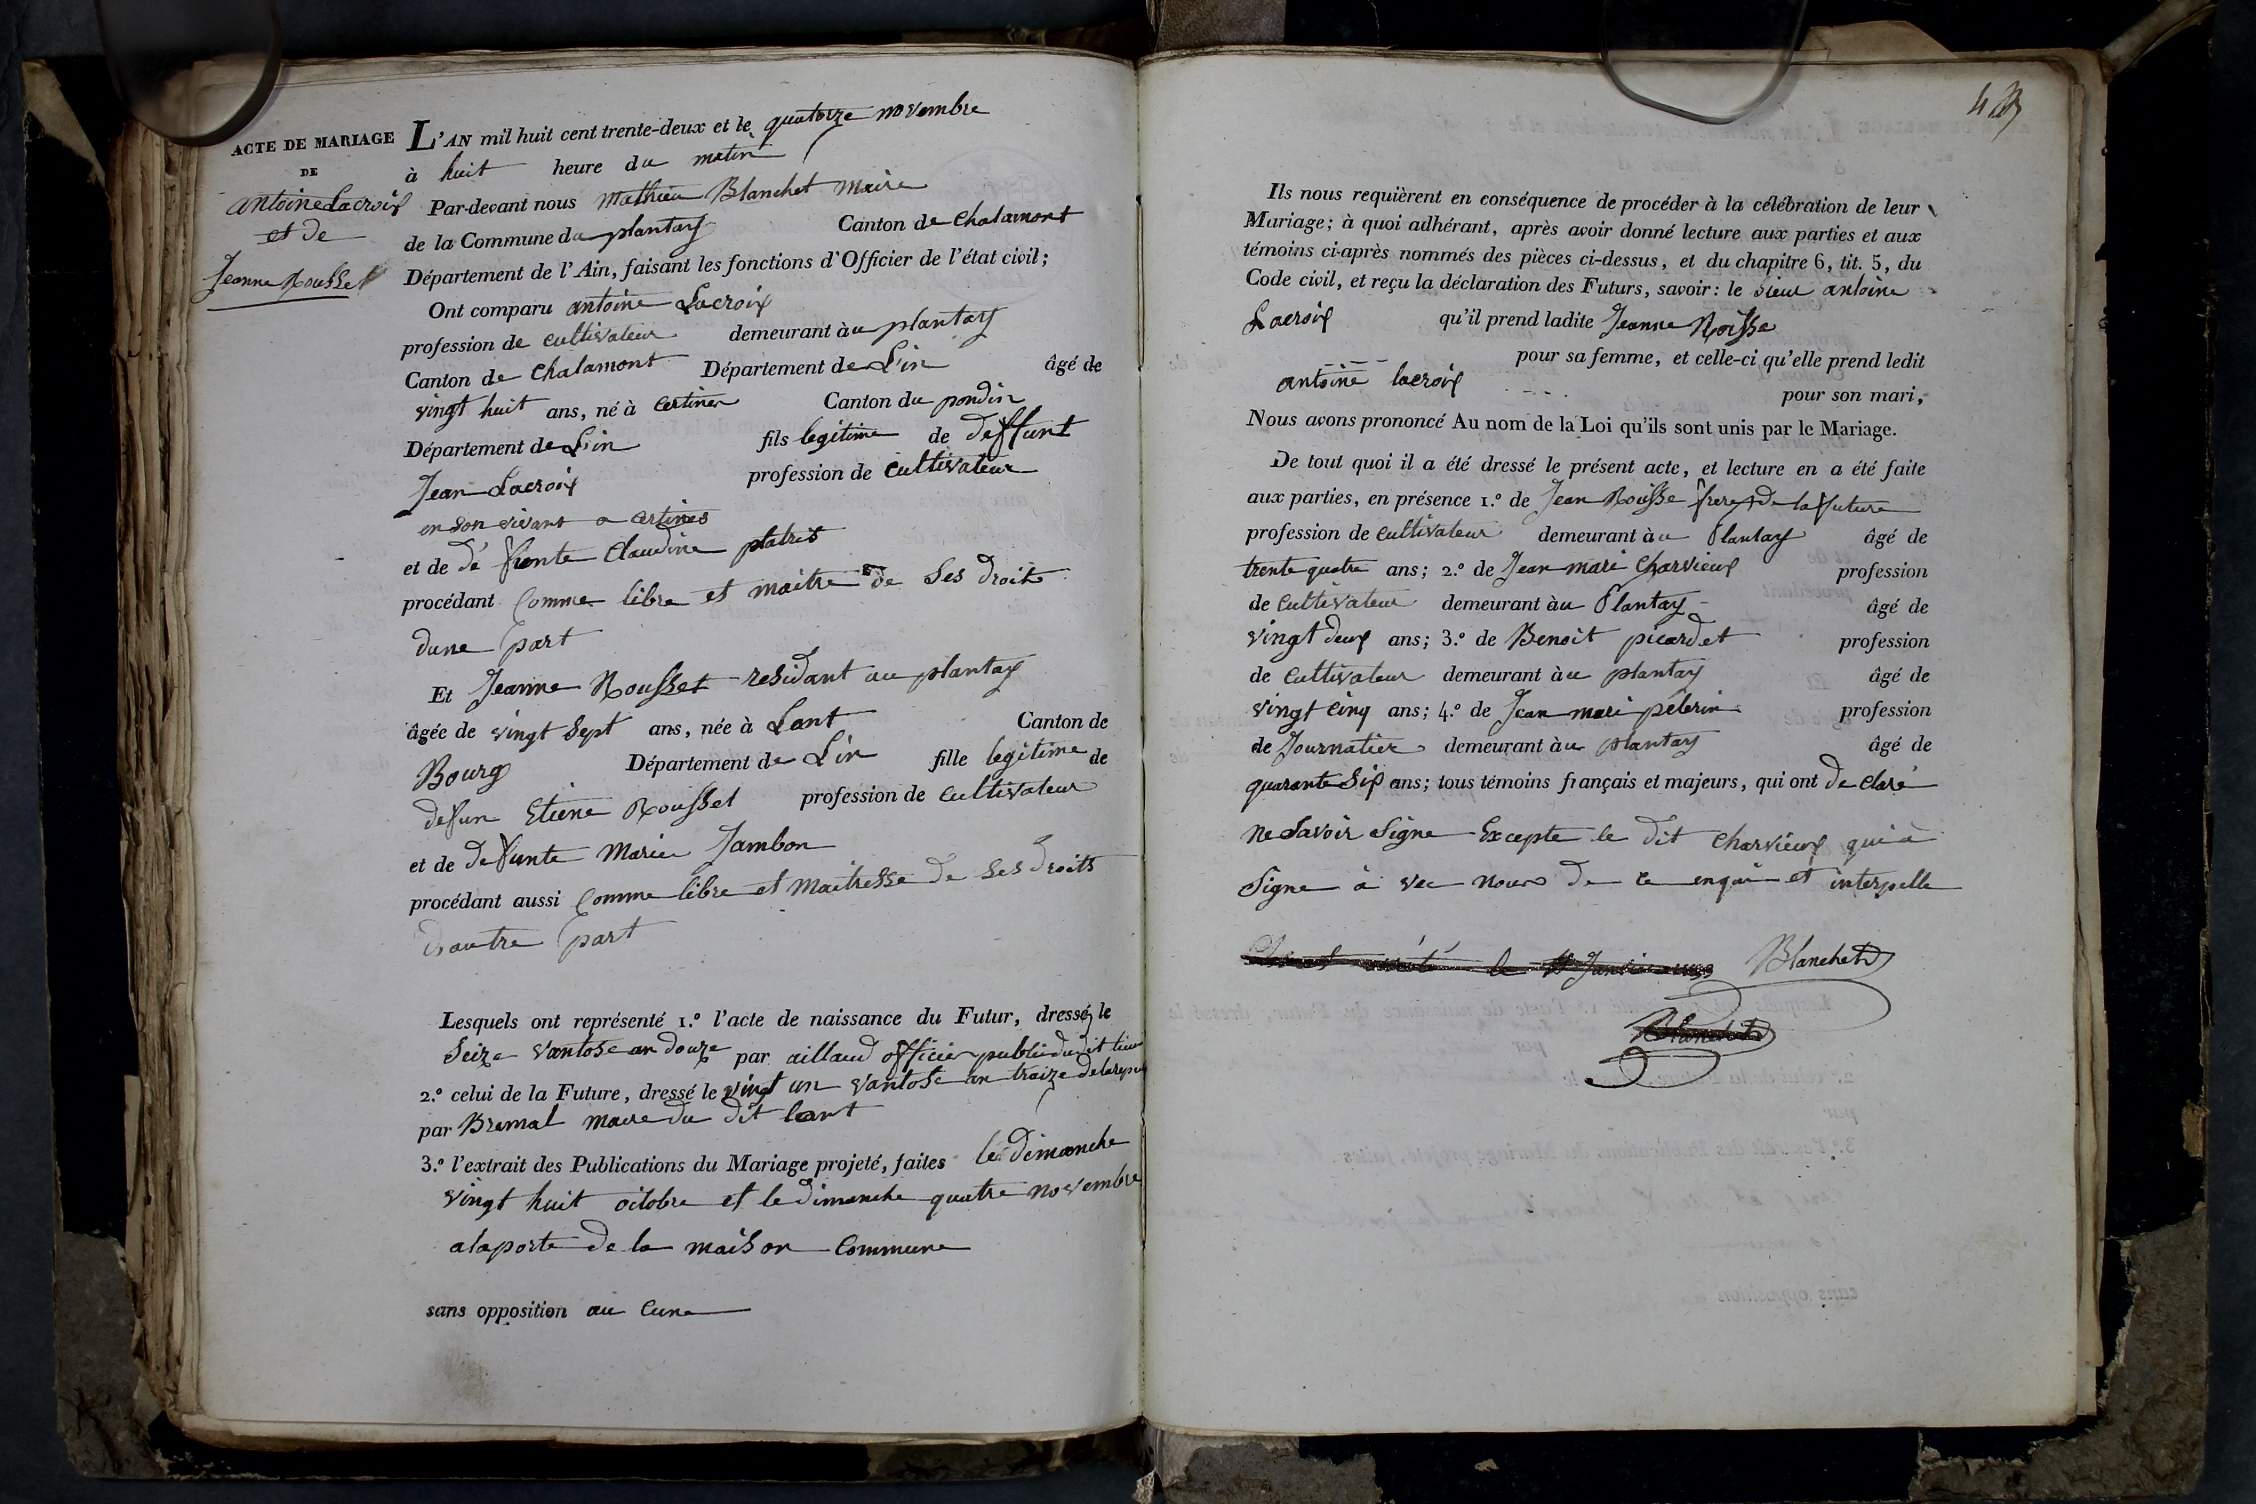 ACTE DE MARIAGE
DE
antoine Lacroix
et de
Jeanne Rousset
L'AN mil huit cent trente-deux et le quatorze novembre
à huit heure du matin
Par-devant nous Mathieu Blanchet Maire
de la Commune du plantay Canton de Chalamont
Département de l'Ain, faisant les fonctions d'Officier de l'état civil;
Ont comparu antoine Lacroix
profession de cultivateur demeurant àu plantay
Canton de Chalamont Département de L'in âgé de
vingt huit ans, né à Certines Canton du pondin
Département de L'in fils legitime de deffunt
Jean Lacroix profession de cultivateur
en son vivant a Certines
et de dé funte Claudine platris
procédant Comme libre et maitre de Ses droits
dune part
Et Jeanne Rousset residant au plantay
âgée de vingt Sept ans, née à Lant Canton de
Bourg Département de L'in fille legitime de
defun Etiene Rousset profession de cultivateur
et de defunte Marie Jambon
procédant aussi Comme libre et Maitresse de Ses droits
dautre part
Lesquels ont représenté 1.º l'acte de naissance du Futur, dressé le
Seize vantose an douze par aillaud officier public dudit lieu
2.º celui de la Future, dressé le vingt un vantose an traize
par Bremal maire du dit lant
3.º l'extrait des Publications du Mariage projeté, faites le dimanche
vingt huit octobre et le dimanche quatre novembre
a la porte de la maison Commune
sans opposition au cune
Ils nous requièrent en conséquence de procéder à la célébration de leur
Mariage; à quoi adhérant, après avoir donné lecture aux parties et aux
témoins ci-après nommés des pièces ci-dessus, et du chapitre 6, tit. 5, du
Code civil, et reçu la déclaration des Futurs, savoir: le sieur antoine
Lacroix qu'il prend ladite Jeanne Rousse
pour sa femme, et celle-ci qu'elle prend ledit
antoine lacroix pour son mari,
Nous avons prononcé Au nom de la Loi qu'ils sont unis par le Mariage.
De tout quoi il a été dressé le présent acte, et lecture en a été faite
aux parties, en présence 1.º de Jean Rousse frere de la future
profession de cultivateur demeurant àu Plantay âgé de
trente quatre ans; 2.º de Jean mari Charvieux profession
de Cultivateur demeurant àu Plantay âgé de
vingt deux ans; 3.º de Benoit picardet profession
de Cultivateur demeurant àu plantay âgé de
vingt cinq ans; 4.º de Jean mari pélerin profession
de Journalier demeurant àu plantay âgé de
quarante Six ans; tous témoins français et majeurs, qui ont de claré
ne Savoir Signe Excepte le dit Charvieux qui à
Signe à vec nous de ce enqui et interpelle
Blanchet
Blanchet